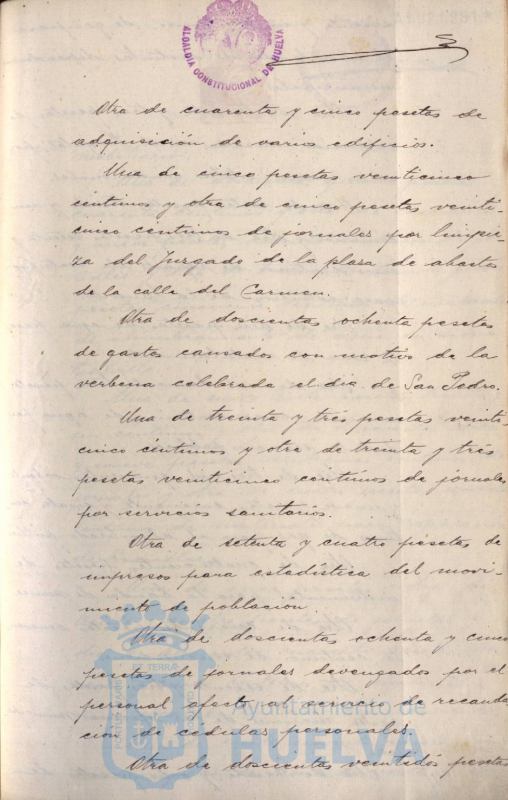 ALCALDIA CONSTITUCIONAL DE HUELVA
Otra de cuarenta y cinco pesetas de
adquisición de varios edificios.
Una de cinco pesetas veinticinco
céntimos y otra de cinco pesetas veinti-
cinco céntimos de jornales por limpie-
za del Juzgado de la plaza de abastos
de la calle del Carmen.
Otra de doscientas ochenta pesetas
de gastos causados con motivo de la
verbena celebrada el dia de San Pedro.
Una de treinta y trés pesetas veinti-
cinco céntimos y otra de treinta y trés
pesetas veinticinco centimos de jornales
por servicios sanitarios.
Otra de setenta y cuatro pesetas de
impresos para estadística del movi-
miento de población.
Otra de doscientas ochenta y cinco
pesetas de jornales devengados por el
personal afecto al servicio de recauda-
ción de cédulas personales.
Otra de doscientas veintidós pesetas
Ayuntamiento de
HUELVA